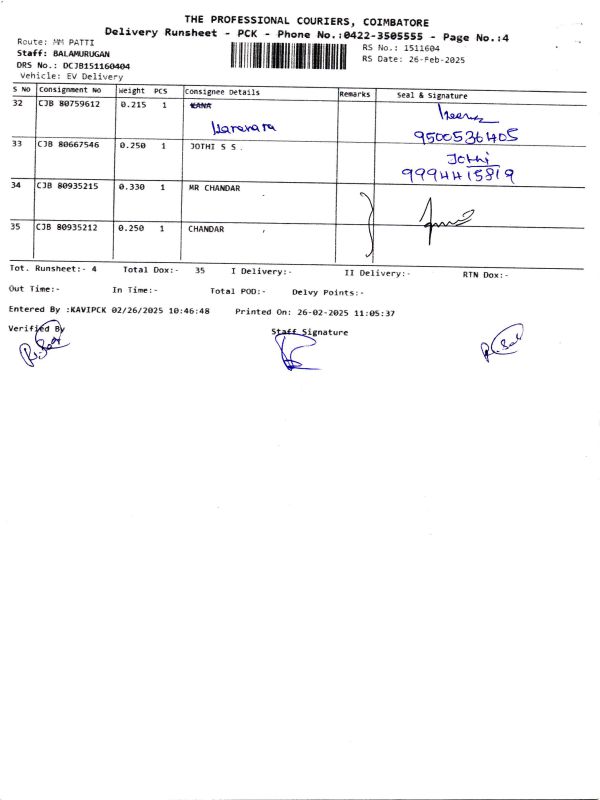 THE PROFESSIONAL COURIERS, COIMBATORE
Delivery Runsheet - PCK - Phone No.:0422-3505555 - Page No.:4
Route: MM PATTI
RS No.: 1511604
Staff: BALAMURUGAN
RS Date: 26-Feb-2025
DRS No.: DCJB151160404
Vehicle: EV Delivery
S No Consignment No Weight PCS Consignee Details Remarks Seal & Signature
32 CJB 80759612 0.215 1 KANA
9500536405
33 CJB 80667546 0.250 1 JOTHI S S. Jothi
9994415819
34 CJB 80935215 0.330 1 MR CHANDAR
35 CJB 80935212 0.250 1 CHANDAR
Tot. Runsheet:- 4 Total Dox:- 35 I Delivery:- II Delivery:- RTN Dox:-
Out Time:- In Time:- Total POD:- Delvy Points:-
Entered By :KAVIPCK 02/26/2025 10:46:48 Printed On: 26-02-2025 11:05:37
Verified By Staff Signature